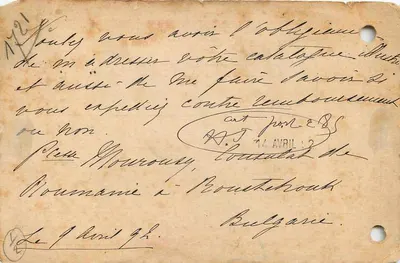 1721
Voulez vous avoir l'obligeance
de m'adresser vôtre catalogue illustré
et aussi de me faire savoir si
vous expediez contre remboursement
ou non.
cat
AVRIL
Pcesse Mourousy, Consulat de
Roumanie à Roustchouk
Bulgarie.
Le 9 Avril 92.